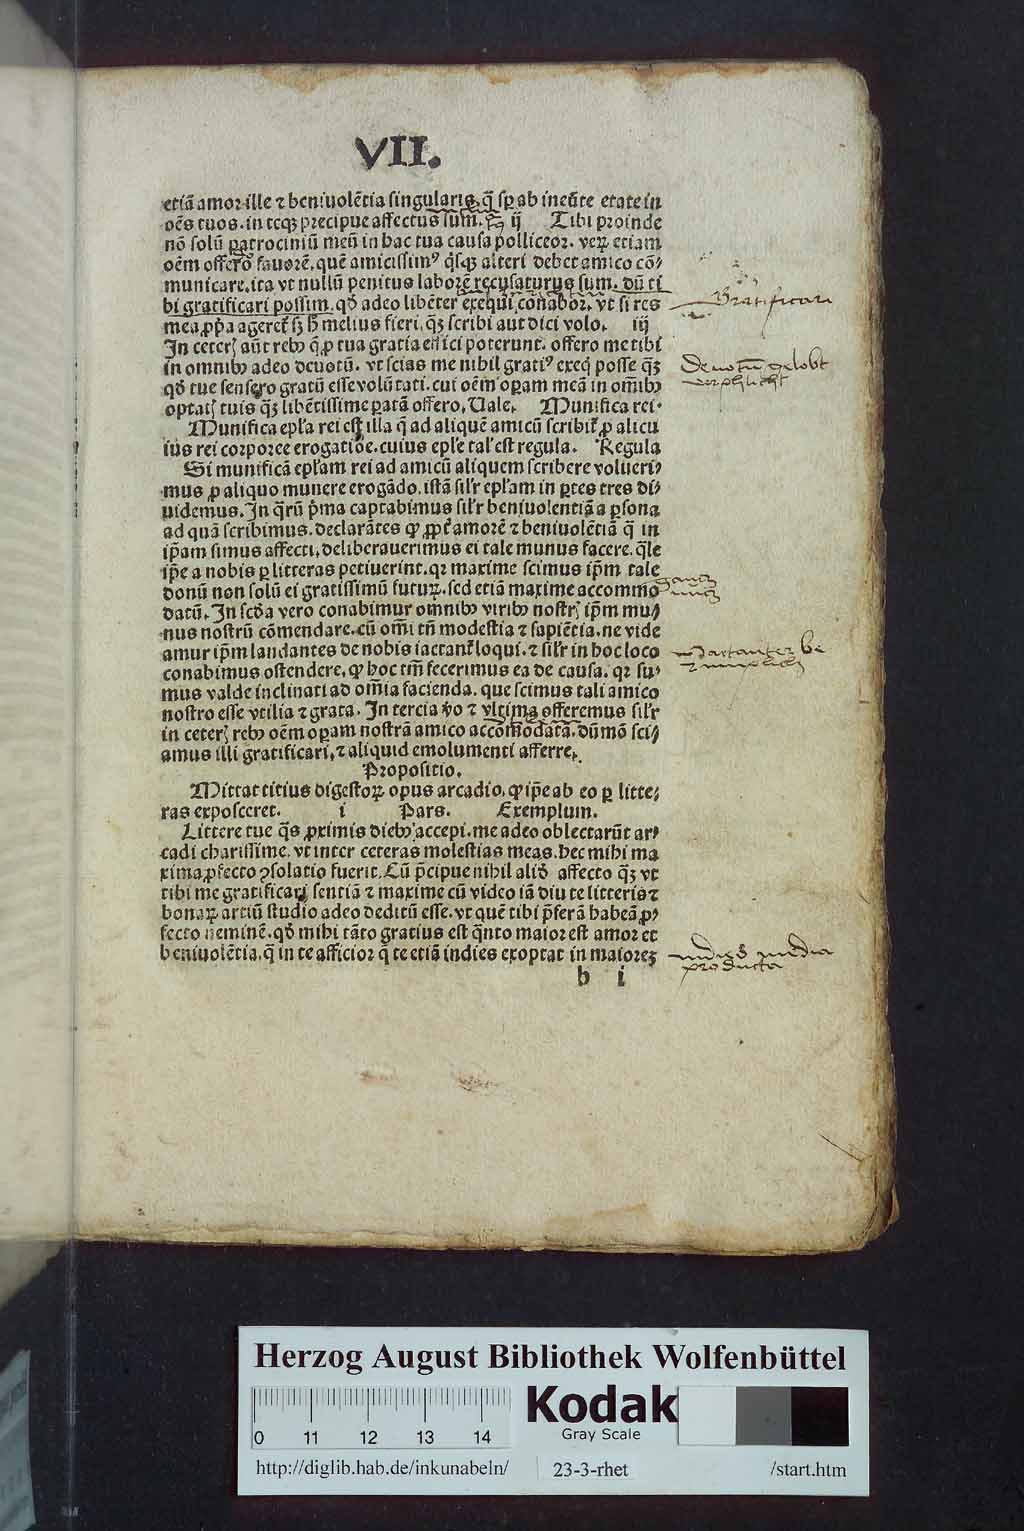 VII.
etiã amor ille ⁊ beniuolẽtia singularis. q̃ sꝑ ab ineũte etate in
oẽs tuos. in teqꝫ precipue affectus sum. ij Tibi proinde
nõ solũ patrociniũ meũ in hac tua causa polliceor. veꝝ etiam
oẽm offero fauorẽ. quẽ amicissimꝰ q̃sqꝫ alteri debet amico cõ⸗
municare. ita vt nullũ penitus laborẽ recusaturus sum. dũ ti
bi gratificari possim. qď adeo libẽter exequi conabor. vt si res
mea ꝓp̃a ageret̃ sꝫ h̃ melius fieri. q̃ꝫ scribi aut dici volo. iij
In ceterꝭ aũt rebꝰ q̃ ꝓ tua gratia effici poterunt. offero me tibi
in omnibꝰ adeo deuotũ. vt scias me nihil gratiꝰ exeq̃ posse q̃ꝫ
qď tue sensero gratũ esse volũtati. cui oẽm operam meã in om̃ibꝰ
optatꝭ tuis q̃ꝫ libẽtissime paratã offero. Uale. Munifica rei.
Munifica epľa rei est illa q̃ ad aliquẽ amicũ scribit̃ ꝓ alicu
ius rei corporee erogatiõe. cuius epľe tal̃ est regula. Regula
Si munificã epľam rei ad amicũ aliquem scribere volueri⸗
mus ꝓ aliquo munere erogãdo. istã sil̃r epľam in ꝑtes tres di⸗
uidemus. In q̃rũ p̃ma captabimus sil̃r beniuolentiã a ꝑsona
ad quã scribimus. declarãtes ꝙ ꝓpt̃ amorẽ ⁊ beniuolẽtiã q̃ in
ip̃am simus affecti. deliberauerimus ei tale munus facere. q̃le
ip̃e a nobis ꝑ litteras petiuerint. qꝛ maxime scimus ip̃m tale
donũ non solũ ei gratissimũ futuꝝ. sed etiã maxime accommo
datũ. In scďa vero conabimur omnibꝰ viribꝰ nostrꝭ ip̃m mu⸗
nus nostrũ cõmendare. cũ om̃i tñ modestia ⁊ sapiẽtia. ne vide
amur ip̃m laudantes de nobis iactant̃ loqui. ⁊ sil̃r in hoc loco
conabimus ostendere. ꝙ hoc tm̃ fecerimus ea de causa. qꝛ su⸗
mus valde inclinati ad om̃ia facienda. que scimus tali amico
nostro esse vtilia ⁊ grata. In tercia ṽo ⁊ vltima offeremus sil̃r
in ceterꝭ rebꝰ oẽm operam nostrã amico accõmodatã. dũmõ sci⸗
amus illi gratificari. ⁊ aliquid emolumenti afferre.
Propositio.
Mittat titius digestoꝝ opus arcadio. ꝙ ip̃e ab eo ꝑ litte⸗
ras exposceret. i Pars. Exemplum.
Littere tue q̃s ꝓximis diebꝰ accepi. me adeo oblectarũt ar⸗
cadi charissime. vt inter ceteras molestias meas. hec mihi ma
xima ꝓfecto ꝯsolatio fuerit. Cũ p̃cipue nihil aliď affecto q̃ꝫ vt
tibi me gratificari sentiã ⁊ maxime cũ video iã diu te litteris ⁊
bonaꝝ artiũ studio adeo deditũ esse. vt quẽ tibi p̃ferã habeã ꝓ⸗
fecto neminẽ. qď mihi tãto gratius est q̃nto maior est amor et
beniuolẽtia. q̃ in te afficior q̃ te etiã indies exoptat in maioreꝫ
b i
Gratificari
Deuotũ gelobt
verphlicht
media
producta
Herzog August Bibliothek Wolfenbüttel
0 11 12 13 14
Kodak
Gray Scale
http://diglib.hab.de/inkunabeln/ 23-3-rhet /start.htm